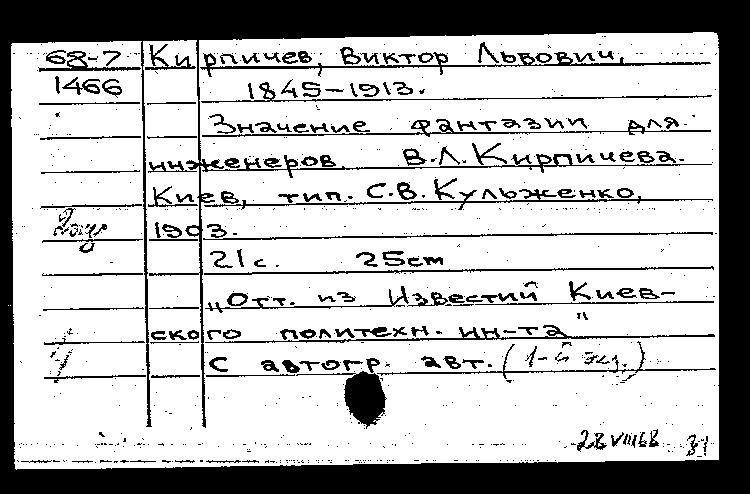 68-7 Кирпичев, Виктор Львович,
1466 1845-1913.
Значение фантазии для
инженеров. В.Л. Кирпичева.
Киев, тип. С.В. Кульженко,
2 экз 1903.
21 с. 25cm
„Отт. из Известий Киев-
ского политехн. ин-та"
С автогр. авт. (1-й экз.)
28 VIII 68 31